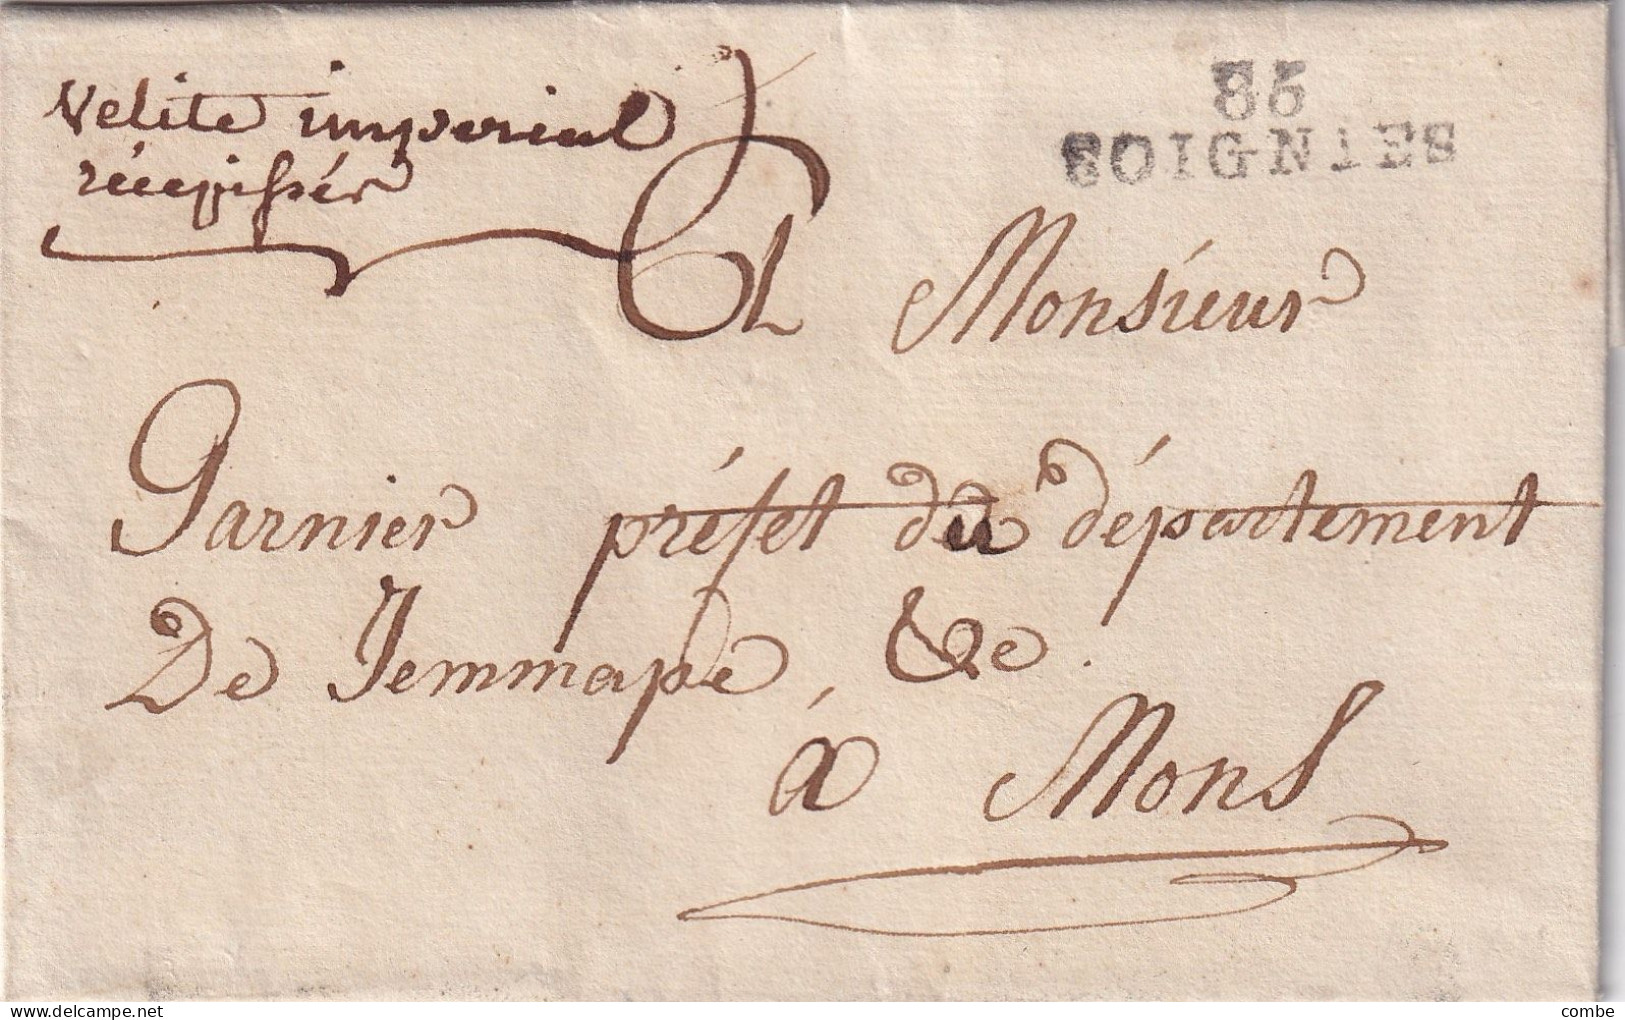 Velite imperial
récepissér
86
SOIGNIES
A Monsieur
Garnier préfet du département
De Jemmape, &e.
à Mons
delcampe.net
combe